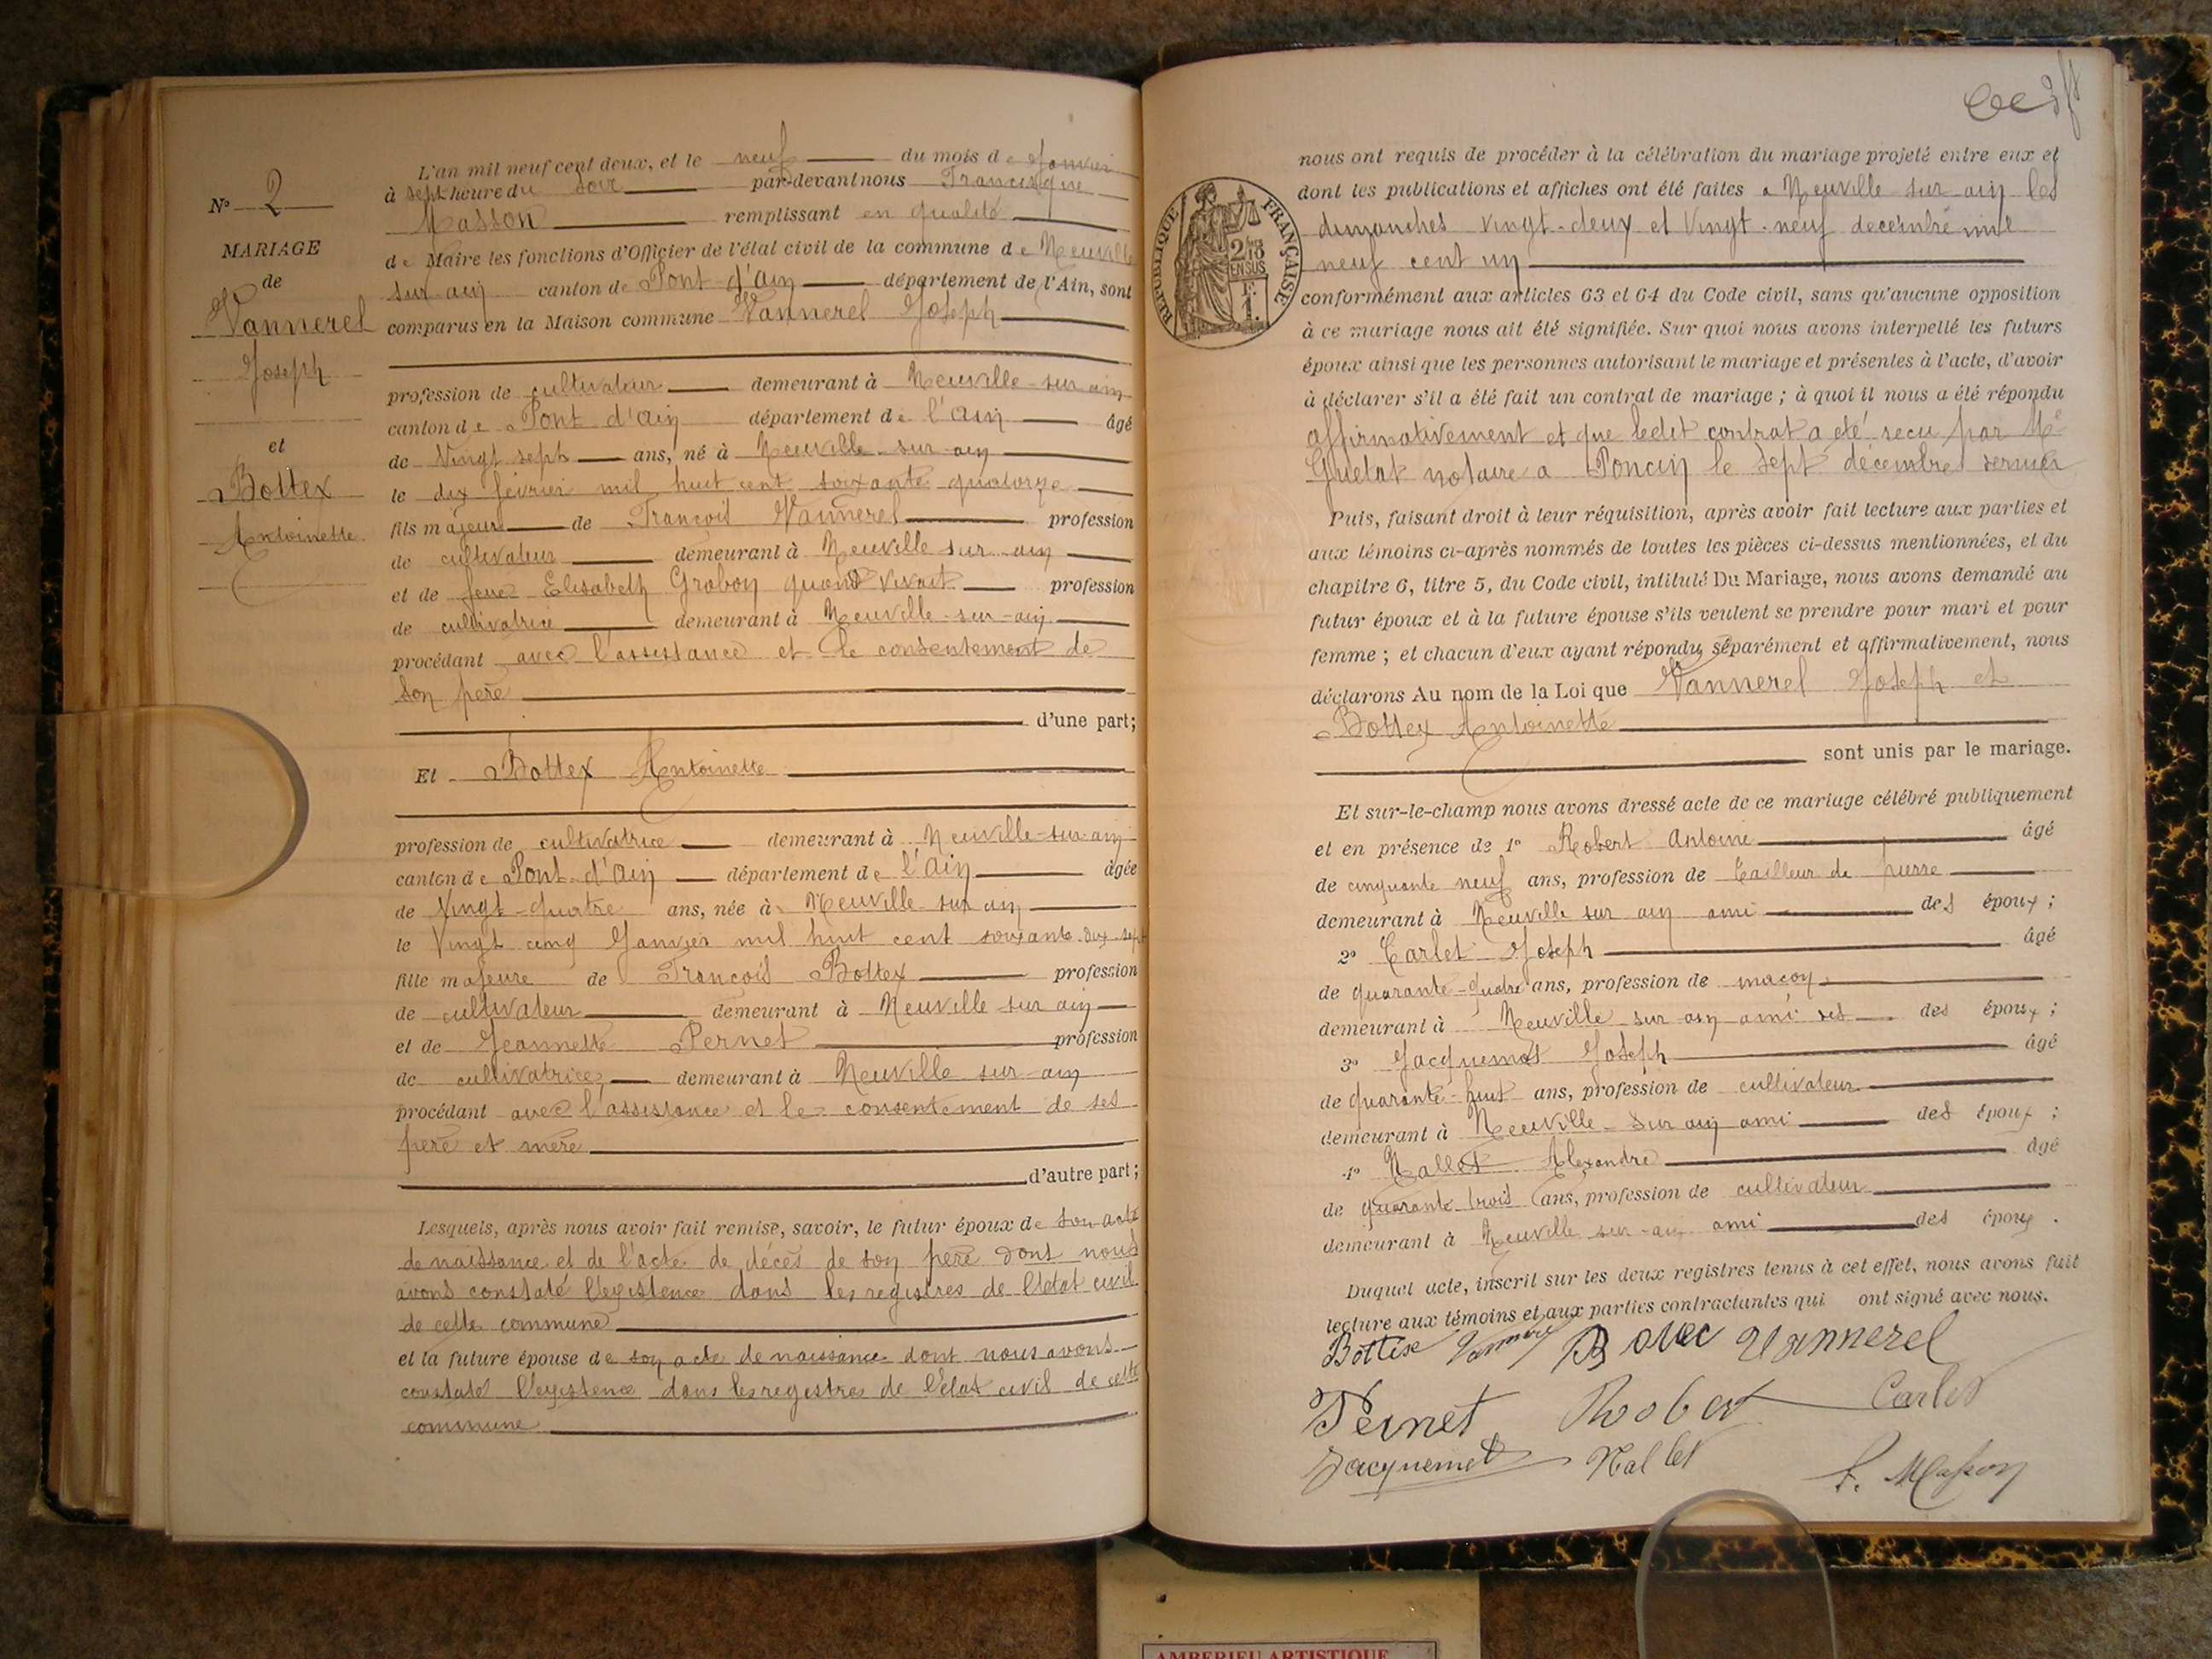 N° 2
MARIAGE
de
Vannerel
Joseph
et
Bottex
Antoinette
L'an mil neuf cent deux, et le neuf du mois de Janvier
à sept heure du soir par-devant nous Francisque
Masson remplissant en qualité
de Maire les fonctions d'Officier de l'état civil de la commune de Neuville
sur ain canton de Pont d'ain département de l'Ain, sont
comparus en la Maison commune Vannerel Joseph
profession de cultivateur demeurant à Neuville-sur-ain
canton de Pont d'ain département de l'ain âgé
de Vingt sept ans, né à Neuville-sur-ain
le dix février mil huit cent soixante quatorze
fils majeur de François Vannerel profession
de cultivateur demeurant à Neuville sur ain
et de feue Elisabeth Grobon quand vivait profession
de cultivatrice demeurant à Neuville-sur-ain
procédant avec l'assistance et le consentement de
son père
d'une part;
Et Bottex Antoinette
profession de cultivatrice demeurant à Neuville-sur-ain
canton de Pont-d'ain département de l'ain âgée
de Vingt-quatre ans, née à Neuville-sur ain
le Vingt cinq Janvier mil huit cent soixante-dix-sept
fille majeure de François Bottex profession
de cultivateur demeurant à Neuville sur ain
et de Jeannette Pernet profession
de cultivatrice demeurant à Neuville sur ain
procédant avec l'assistance et le consentement de ses
père et mère
d'autre part;
Lesquels, après nous avoir fait remise, savoir, le futur époux de son acte
de naissance et de l'acte de décès de son père dont nous
avons constaté l'existence dans les registres de l'état civil
de cette commune
et la future épouse de son acte de naissance dont nous avons
constaté l'existence dans les registres de l'état civil de cette
commune
nous ont requis de procéder à la célébration du mariage projeté entre eux et
dont les publications et affiches ont été faites a Neuville sur ain les
dimanches vingt-deux et Vingt-neuf décembre mil
neuf cent un
RÉPUBLIQUE FRANÇAISE
2/10
EN SUS
1 F.
conformément aux articles 63 et 64 du Code civil, sans qu'aucune opposition
à ce mariage nous ait été signifiée. Sur quoi nous avons interpellé les futurs
époux ainsi que les personnes autorisant le mariage et présentes à l'acte, d'avoir
à déclarer s'il a été fait un contrat de mariage ; à quoi il nous a été répondu
affirmativement et que ledit contrat a été recu par Me
Guetat notaire a Poncin le sept décembre dernier
Puis, faisant droit à leur réquisition, après avoir fait lecture aux parties et
aux témoins ci-après nommés de toutes les pièces ci-dessus mentionnées, et du
chapitre 6, titre 5, du Code civil, intitulé Du Mariage, nous avons demandé au
futur époux et à la future épouse s'ils veulent se prendre pour mari et pour
femme ; et chacun d'eux ayant répondu séparément et affirmativement, nous
déclarons Au nom de la Loi que Vannerel Joseph et
Bottex Antoinette
sont unis par le mariage.
Et sur-le-champ nous avons dressé acte de ce mariage célébré publiquement
et en présence de 1° Robert Antoine âgé
de cinquante neuf ans, profession de tailleur de pierre
demeurant à Neuville sur ain ami des époux ;
2° Carlet Joseph âgé
de quarante-quatre ans, profession de maçon
demeurant à Neuville sur ain ami des époux ;
3° Jacquemet Joseph âgé
de quarante-huit ans, profession de cultivateur
demeurant à Neuville-sur ain ami des époux ;
4° Nallet Alexandre âgé
de quarante trois ans, profession de cultivateur
demeurant à Neuville sur-ain ami des époux.
Duquel acte, inscrit sur les deux registres tenus à cet effet, nous avons fait
lecture aux témoins et aux parties contractantes qui ont signé avec nous.
Bottex Vannerel
Pernet Robert Carlet
Jacquemet Nallet F. Masson
AMBERIEU ARTISTIQUE